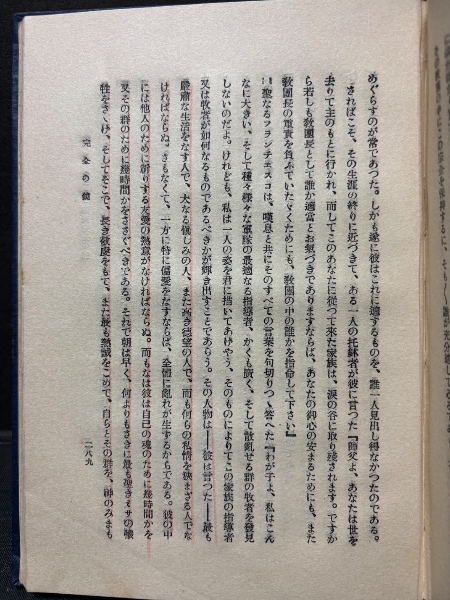 めぐらすのが常であつた。しかも遂に彼はこれに適するものを、誰一人見出し得なかつたのである。
さればこそ、その生涯の終りに近づきて、ある一人の托鉢者が彼に言つた『師父よ、あなたは世を
去りて主のもとに行かれ、而してこのあなたに從つて來た家族は、涙の谷に取り殘されます。ですか
ら若しも敎團長として誰か適當とお氣づきでありますならば、あなたの御心の安まるためにも、また
敎團長の重責を負ふていたゞくためにも、敎團の中の誰かを指命して下さい』
聖なるフランチェスコは、嘆息と共にそのすべての言葉を句切りつゝ答へた『わが子よ、私はこん
なに大きい、そして種々樣々な軍隊の最適なる指導者、かくも廣く、そして散亂せる群の牧者を發見
しないのだよ。けれども、私は一人の姿を君に描いてあげやう、そのものによりてこの家族の指導者
又は牧者が如何なるものであるべきかが輝き出すことであらう。その人物は――彼は言つた――最も
嚴肅な生活をなす人で、大なる愼しみの人、また高き德望の人で、而も何らの私情を挾まざる人でな
ければならぬ。さもなくて、一方に特に偏愛をなすならば、全團に亂れが生ずるからである。彼の中
には他人のために祈りする友愛の熱意がなければならぬ。而もなほ彼は自己の魂のために幾時間かを
又その群のために幾時間かをささぐべきである。それで朝は早く、何よりもさきに最も聖きミサの犧
牲をさゝげ、そしてそこで、長き敬虔をもて、また最も熱誠をこめて、自らとその群を、神のみまも
完全の鏡
二八九